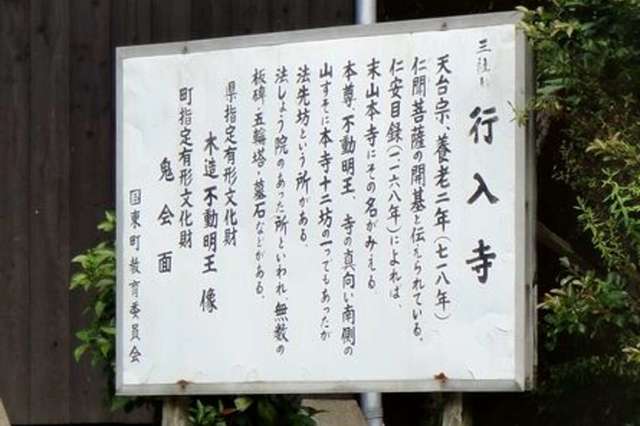 行入寺
天台宗、養老二年(七一八年)
仁聞菩薩の開基と伝えられている。
仁安目録(一一六八年)によれば、
末山本寺にその名がみえる
本尊、不動明王、寺の真向い南側の
山すそに本寺十二坊の一つでもあったが
法先坊という所がある。
法しょう院のあった所といわれ、無数の
板碑・五輪塔・墓石などがある。
県指定有形文化財
木造不動明王像
町指定有形文化財
鬼会面
国東町教育委員会